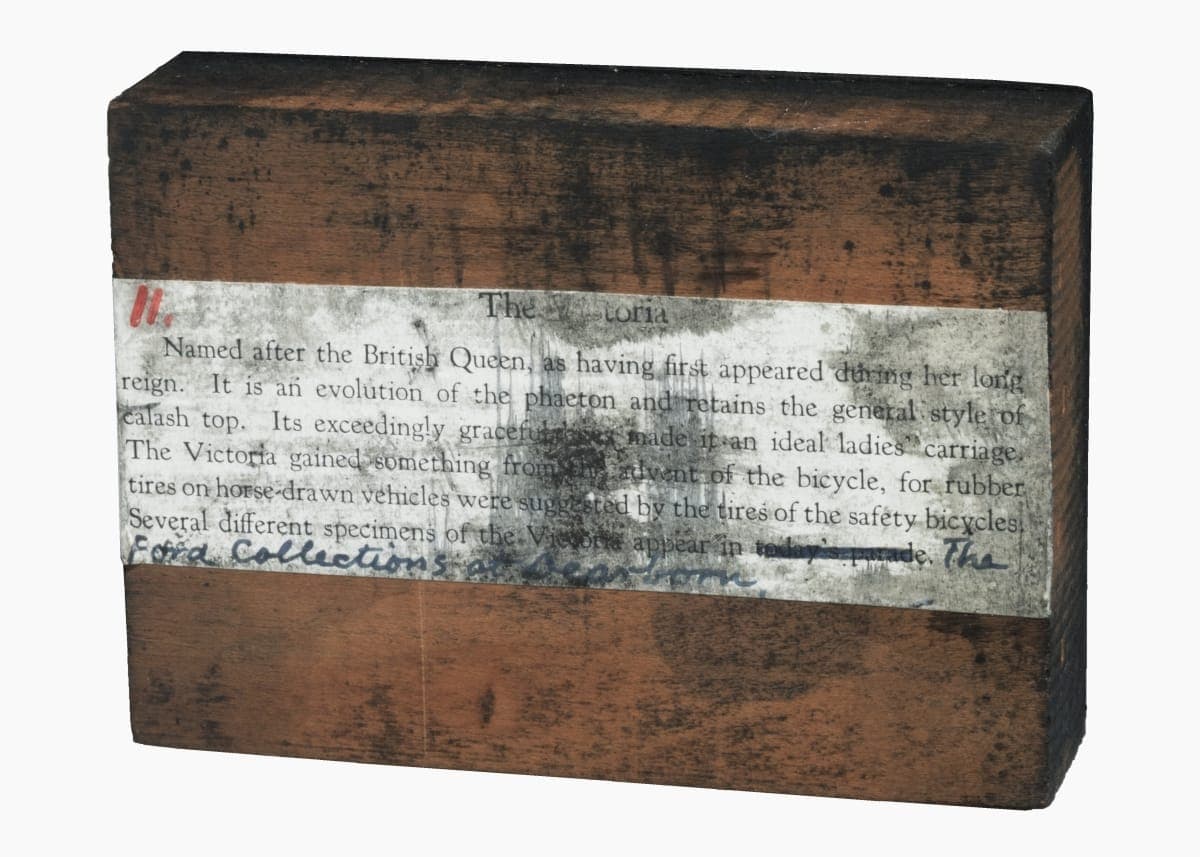 11.
The toria
Named after the British Queen, as having first appeared during her long
reign. It is an evolution of the phaeton and retains the general style of
calash top. Its exceedingly graceful made it an ideal ladies' carriage.
The Victoria gained something from the advent of the bicycle, for rubber
tires on horse-drawn vehicles were suggested by the tires of the safety bicycles.
Several different specimens of the Victoria appear in today's parade. The
Ford Collections at Dearborn